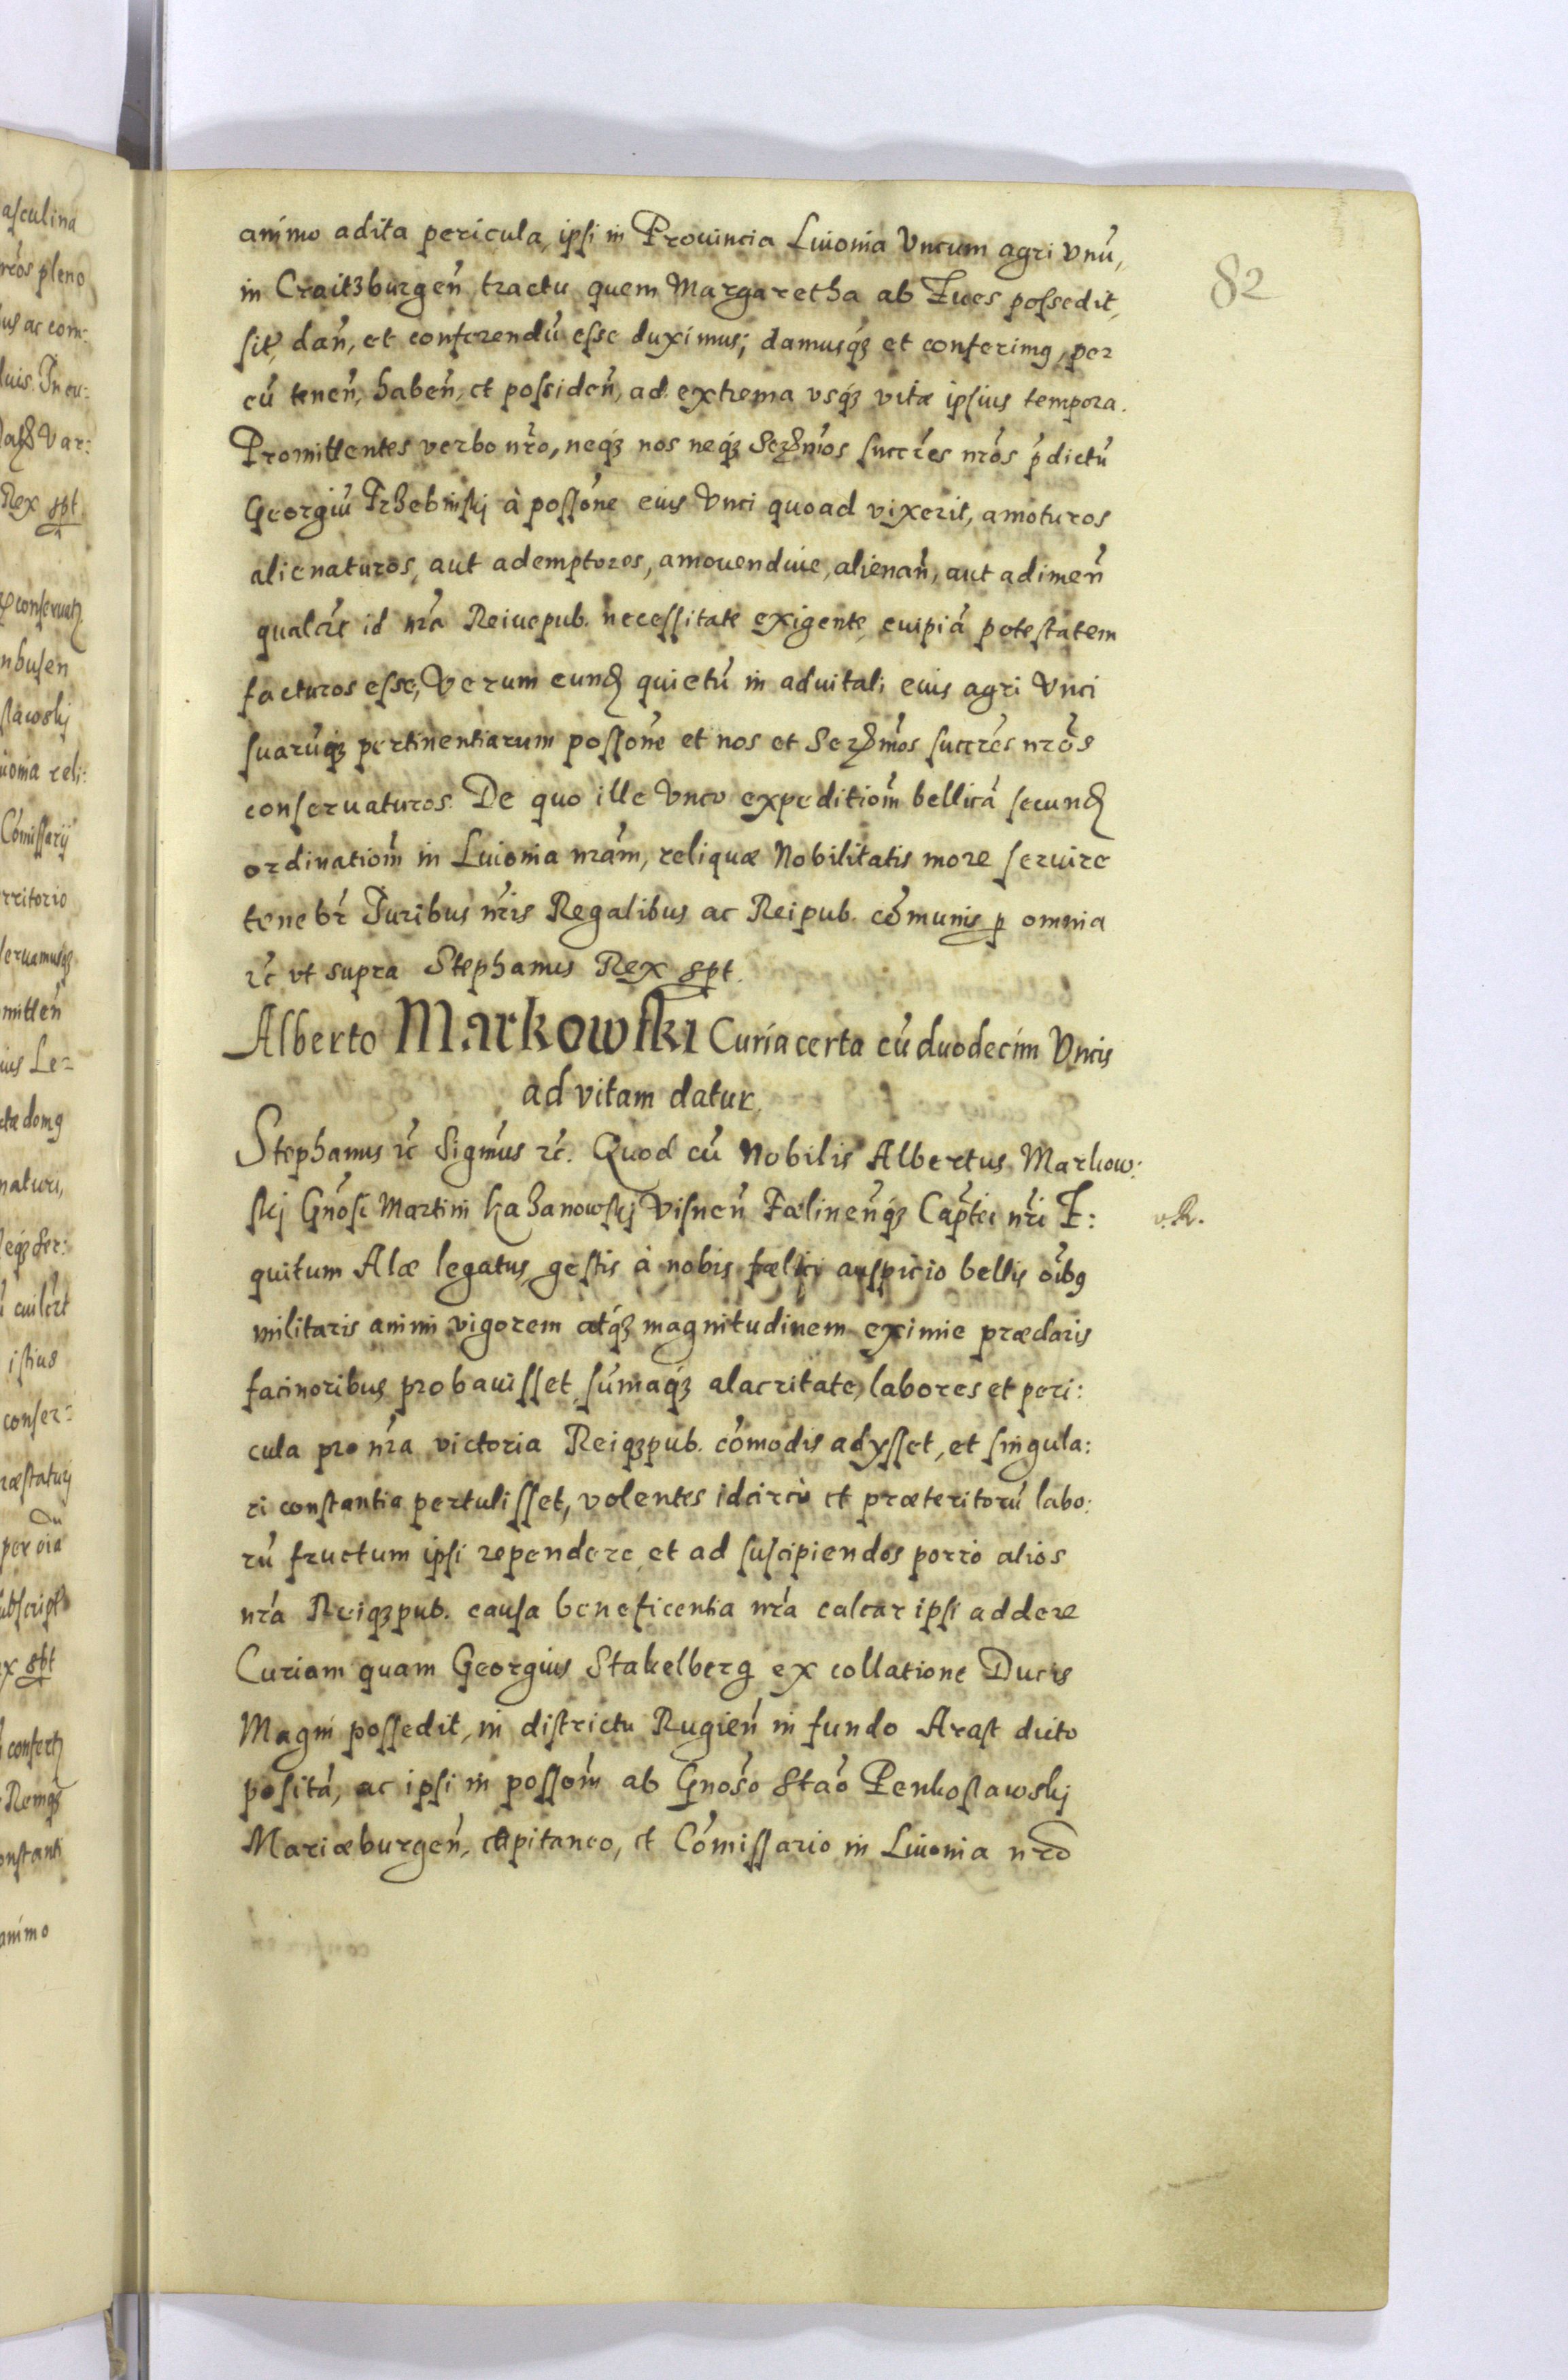 82
animo adita pericula, ipsi in Prouincia Liuonia Vncum agri vnũ,
in Craitzburgeñ tractu quem Margaretha ab Iues possedit,
sit, dañ, et conferendũ esse duximus; damusq́ʒ et conferimꝰ, per
eũ teneñ, habeñ, et possideñ, ad extrema vsq́ʒ vitæ ipsius tempora.
Promittentes verbo nr̃o, neq́ʒ nos neq́ʒ Serẽnm̃os succr̃es nr̃os p̃dictũ
Georgiũ Trzebinskj à possõne eius Vnci quoad vixerit, amoturos
alienaturos, aut adempturos, amouendiue, alienañ, aut adimeñ
qualcr̃e id nr̃a Reiuepub. necessitate exigente, cuipiã potestatem
facturos esse, Verum eund quietũ in aduitali eius agri Vnci
suarũq́ʒ pertinentiarum possõne et nos et Serẽnm̃os succr̃es nr̃os
conseruaturos. De quo ille Vnco expeditiom̃ bellicã secund
ordinatiom̃ in Liuonia nrãm, reliquæ Nobilitatis more seruire
tenebr̃ Iuribus nr̃is Regalibus ac Reipub. cõmunis p omnia
ꝛc̃ vt supra Stephanus Rex sp̱t.
Alberto Markowski Curia certa cũ duodecim Vncis
ad vitam datur.
Stephanus ꝛc̃ Sigm̃us ꝛc̃. Quod cũ Nobilis Albertus Markow:
skj Gñosi Martini Kazanowskj Visneñ Fælineñq́ʒ Cap̃tei nr̃i E:
v. R.
quitum Alæ legatus, gestis à nobis fælici auspicio bellis oĩbꝰ
militaris animi vigorem atq́ʒ magnitudinem eximie præclaris
facinoribus probauisset, sũmaq́ʒ alacritate, labores et peri:
cula pro nr̃a victoria Reiqʒpub. cõmodis adysset, et singula:
ri constantia pertulisset, volentes idcircò et præteritorũ labo:
rũ fructum ipsi rependere et ad suscipiendos porro alios
nr̃a Reiqʒpub. causa beneficentia nr̃a calcar ipsi addere
Curiam quam Georgius Stakelberg ex collatione Ducis
Magni possedit, in districtu Rugieñ in fundo Arast dicto
positã, ac ipsi in possom̃ ab Gñoso Stao Penkoslawskj
Mariæburgeñ, capitaneo, et Cõmissario in Liuonia nr̃o